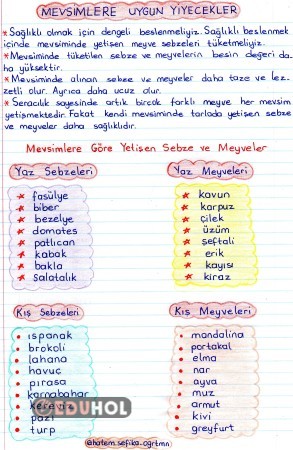 MEVSİMLERE UYGUN YİYECEKLER
* Sağlıklı olmak için dengeli beslenmeliyiz. Sağlıklı beslenmek
içinde mevsiminde yetişen meyve sebzeleri tüketmeliyiz.
* Mevsiminde tüketilen sebze ve meyvelerin besin değeri da-
ha yüksektir.
* Mevsiminde alınan sebze ve meyveler daha taze ve lez-
zetli olur. Ayrıca daha ucuz olur.
* Seracılık sayesinde artık birçok farklı meyve her mevsim
yetişmektedir. Fakat kendi mevsiminde tarlada yetişen sebze
ve meyveler daha sağlıklıdır.
Mevsimlere Göre Yetişen Sebze ve Meyveler
Yaz Sebzeleri
* fasülye
* biber
* bezelye
* domates
* patlıcan
* kabak
* bakla
* salatalık
Yaz Meyveleri
* kavun
* karpuz
* çilek
* üzüm
* şeftali
* erik
* kayısı
* kiraz
Kış Sebzeleri
• ıspanak
• brokoli
• lahana
• havuç
• pırasa
• karnabahar
• kereviz
• pazı
• turp
Kış Meyveleri
• mandalina
• portakal
• elma
• nar
• ayva
• muz
• armut
• kivi
• greyfurt
@hatem.sefika.ogrtmn